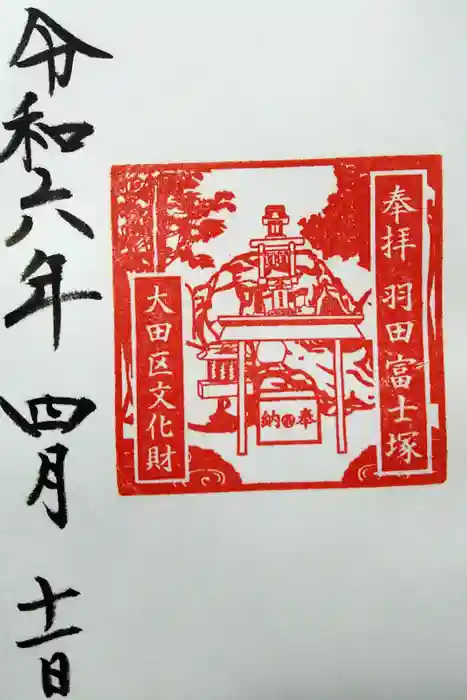 奉拝 羽田富士塚
大田区文化財
奉納
令和六年 四月 十一日